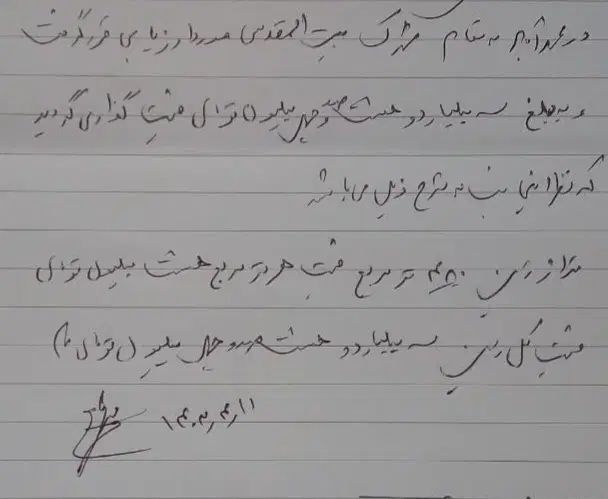 در به شهرک بیت المقدس مورد ارزیابی قرار گرفت
و به مبلغ سه میلیارد و هشتصد و چهل میلیون تومان قیمت گذاری گردید
که نظر اینجانب به شرح ذیل می باشد
متراژ زمین ۴۸۰ متر مربع قیمت هر متر مربع هشت میلیون تومان
قیمت کل زمین سه میلیارد و هشتصد و چهل میلیون تومان